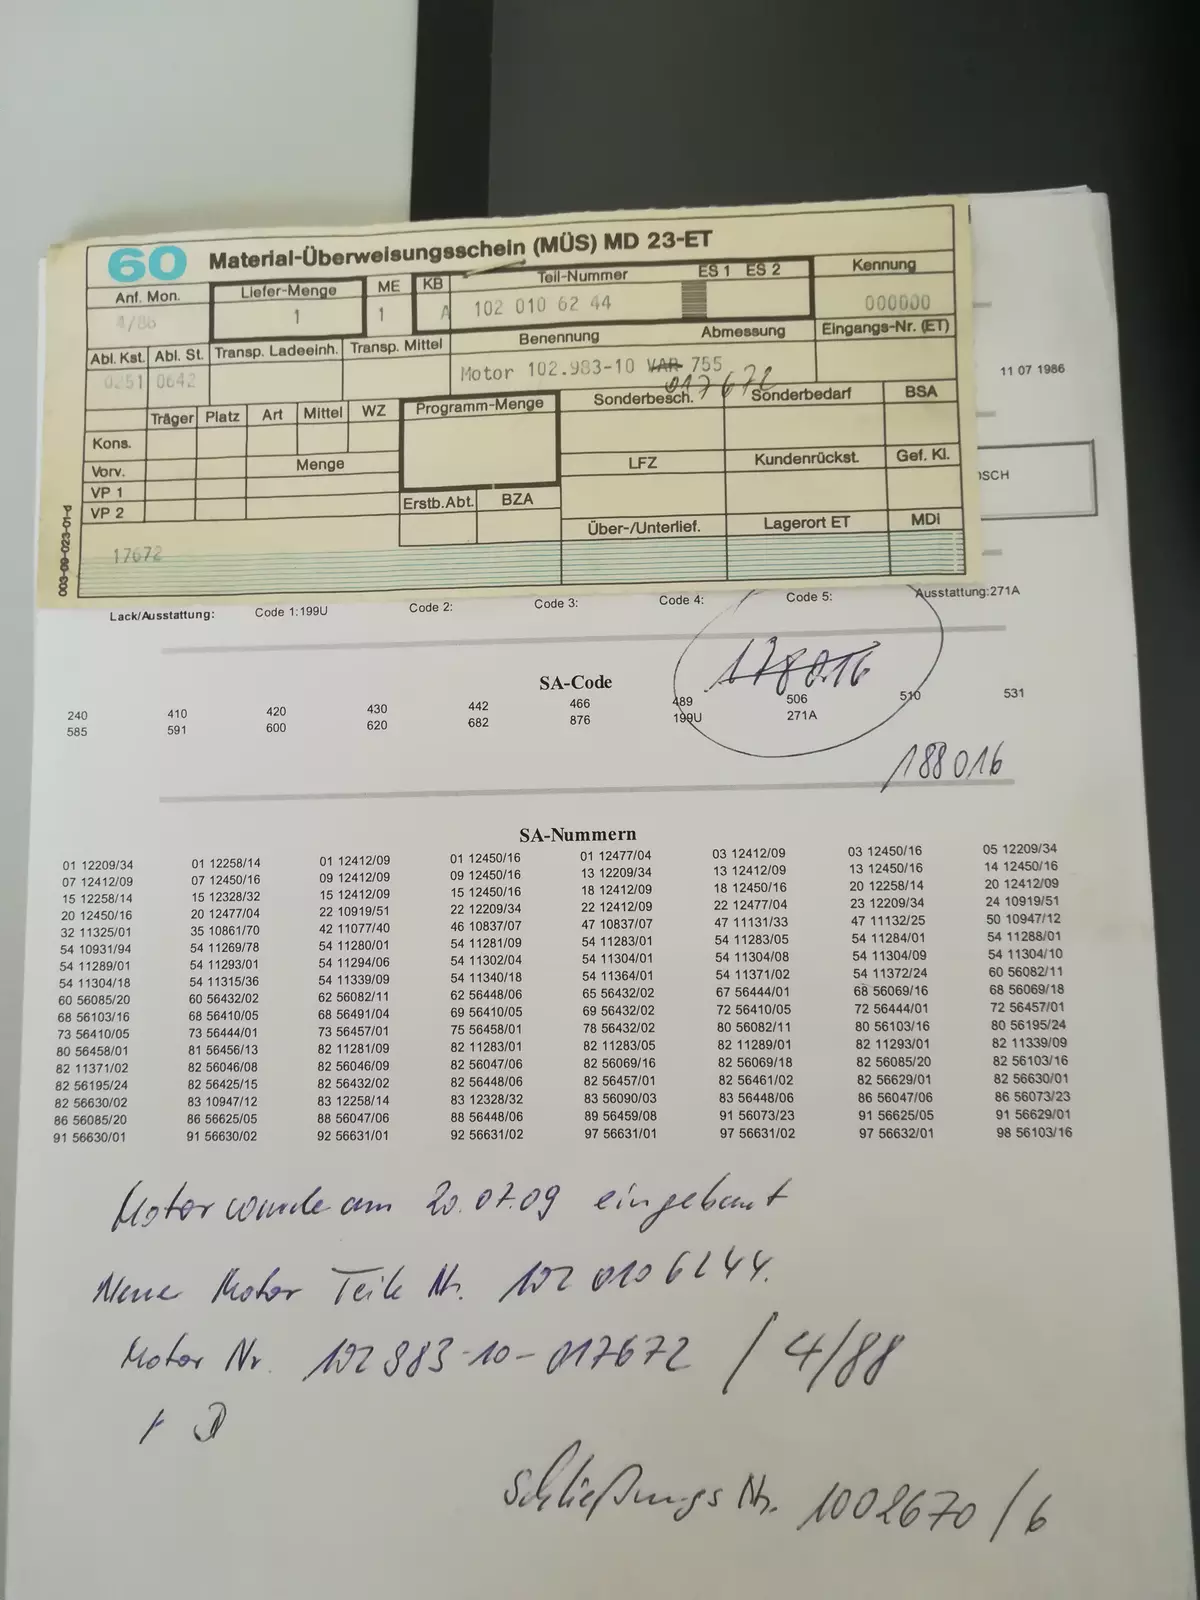 60 Material-Überweisungsschein (MÜS) MD 23-ET
Anf. Mon. Liefer-Menge ME KB Teil-Nummer ES 1 ES 2 Kennung
4/88 1 1 A 102 010 62 44 000000
Abl. Kst. Abl. St. Transp. Ladeeinh. Transp. Mittel Benennung Abmessung Eingangs-Nr. (ET)
0251 0642 Motor 102.983-10 VAR 755
017672
11 07 1986
Träger Platz Art Mittel WZ Programm-Menge Sonderbesch. Sonderbedarf BSA
Kons.
Vorv. Menge LFZ Kundenrückst. Gef. Kl.
OSCH
VP 1
VP 2 Erstb.Abt. BZA Über-/Unterlief. Lagerort ET MDi
17672
003-09-023-01-d
Lack/Ausstattung: Code 1:199U Code 2: Code 3: Code 4: Code 5: Ausstattung:271A
178016
SA-Code
240 410 420 430 442 466 489 506 510 531
585 591 600 620 682 876 199U 271A
188016
SA-Nummern
01 12209/34 01 12258/14 01 12412/09 01 12450/16 01 12477/04 03 12412/09 03 12450/16 05 12209/34
07 12412/09 07 12450/16 09 12412/09 09 12450/16 13 12209/34 13 12412/09 13 12450/16 14 12450/16
15 12258/14 15 12328/32 15 12412/09 15 12450/16 18 12412/09 18 12450/16 20 12258/14 20 12412/09
20 12450/16 20 12477/04 22 10919/51 22 12209/34 22 12412/09 22 12477/04 23 12209/34 24 10919/51
32 11325/01 35 10861/70 42 11077/40 46 10837/07 47 10837/07 47 11131/33 47 11132/25 50 10947/12
54 10931/94 54 11269/78 54 11280/01 54 11281/09 54 11283/01 54 11283/05 54 11284/01 54 11288/01
54 11289/01 54 11293/01 54 11294/06 54 11302/04 54 11304/01 54 11304/08 54 11304/09 54 11304/10
54 11304/18 54 11315/36 54 11339/09 54 11340/18 54 11364/01 54 11371/02 54 11372/24 60 56082/11
60 56085/20 60 56432/02 62 56082/11 62 56448/06 65 56432/02 67 56444/01 68 56069/16 68 56069/18
68 56103/16 68 56410/05 68 56491/04 69 56410/05 69 56432/02 72 56410/05 72 56444/01 72 56457/01
73 56410/05 73 56444/01 73 56457/01 75 56458/01 78 56432/02 80 56082/11 80 56103/16 80 56195/24
80 56458/01 81 56456/13 82 11281/09 82 11283/01 82 11283/05 82 11289/01 82 11293/01 82 11339/09
82 11371/02 82 56046/08 82 56046/09 82 56047/06 82 56069/16 82 56069/18 82 56085/20 82 56103/16
82 56195/24 82 56425/15 82 56432/02 82 56448/06 82 56457/01 82 56461/02 82 56629/01 82 56630/01
82 56630/02 83 10947/12 83 12258/14 83 12328/32 83 56090/03 83 56448/06 86 56047/06 86 56073/23
86 56085/20 86 56625/05 88 56047/06 88 56448/06 89 56459/08 91 56073/23 91 56625/05 91 56629/01
91 56630/01 91 56630/02 92 56631/01 92 56631/02 97 56631/01 97 56631/02 97 56632/01 98 56103/16
Motor wurde am 20.07.09 eingebaut
Neue Motor Teile Nr. 102 010 6244.
Motor Nr. 102 983-10-017672 / 4/88
Schließungs Nr. 1002670/6